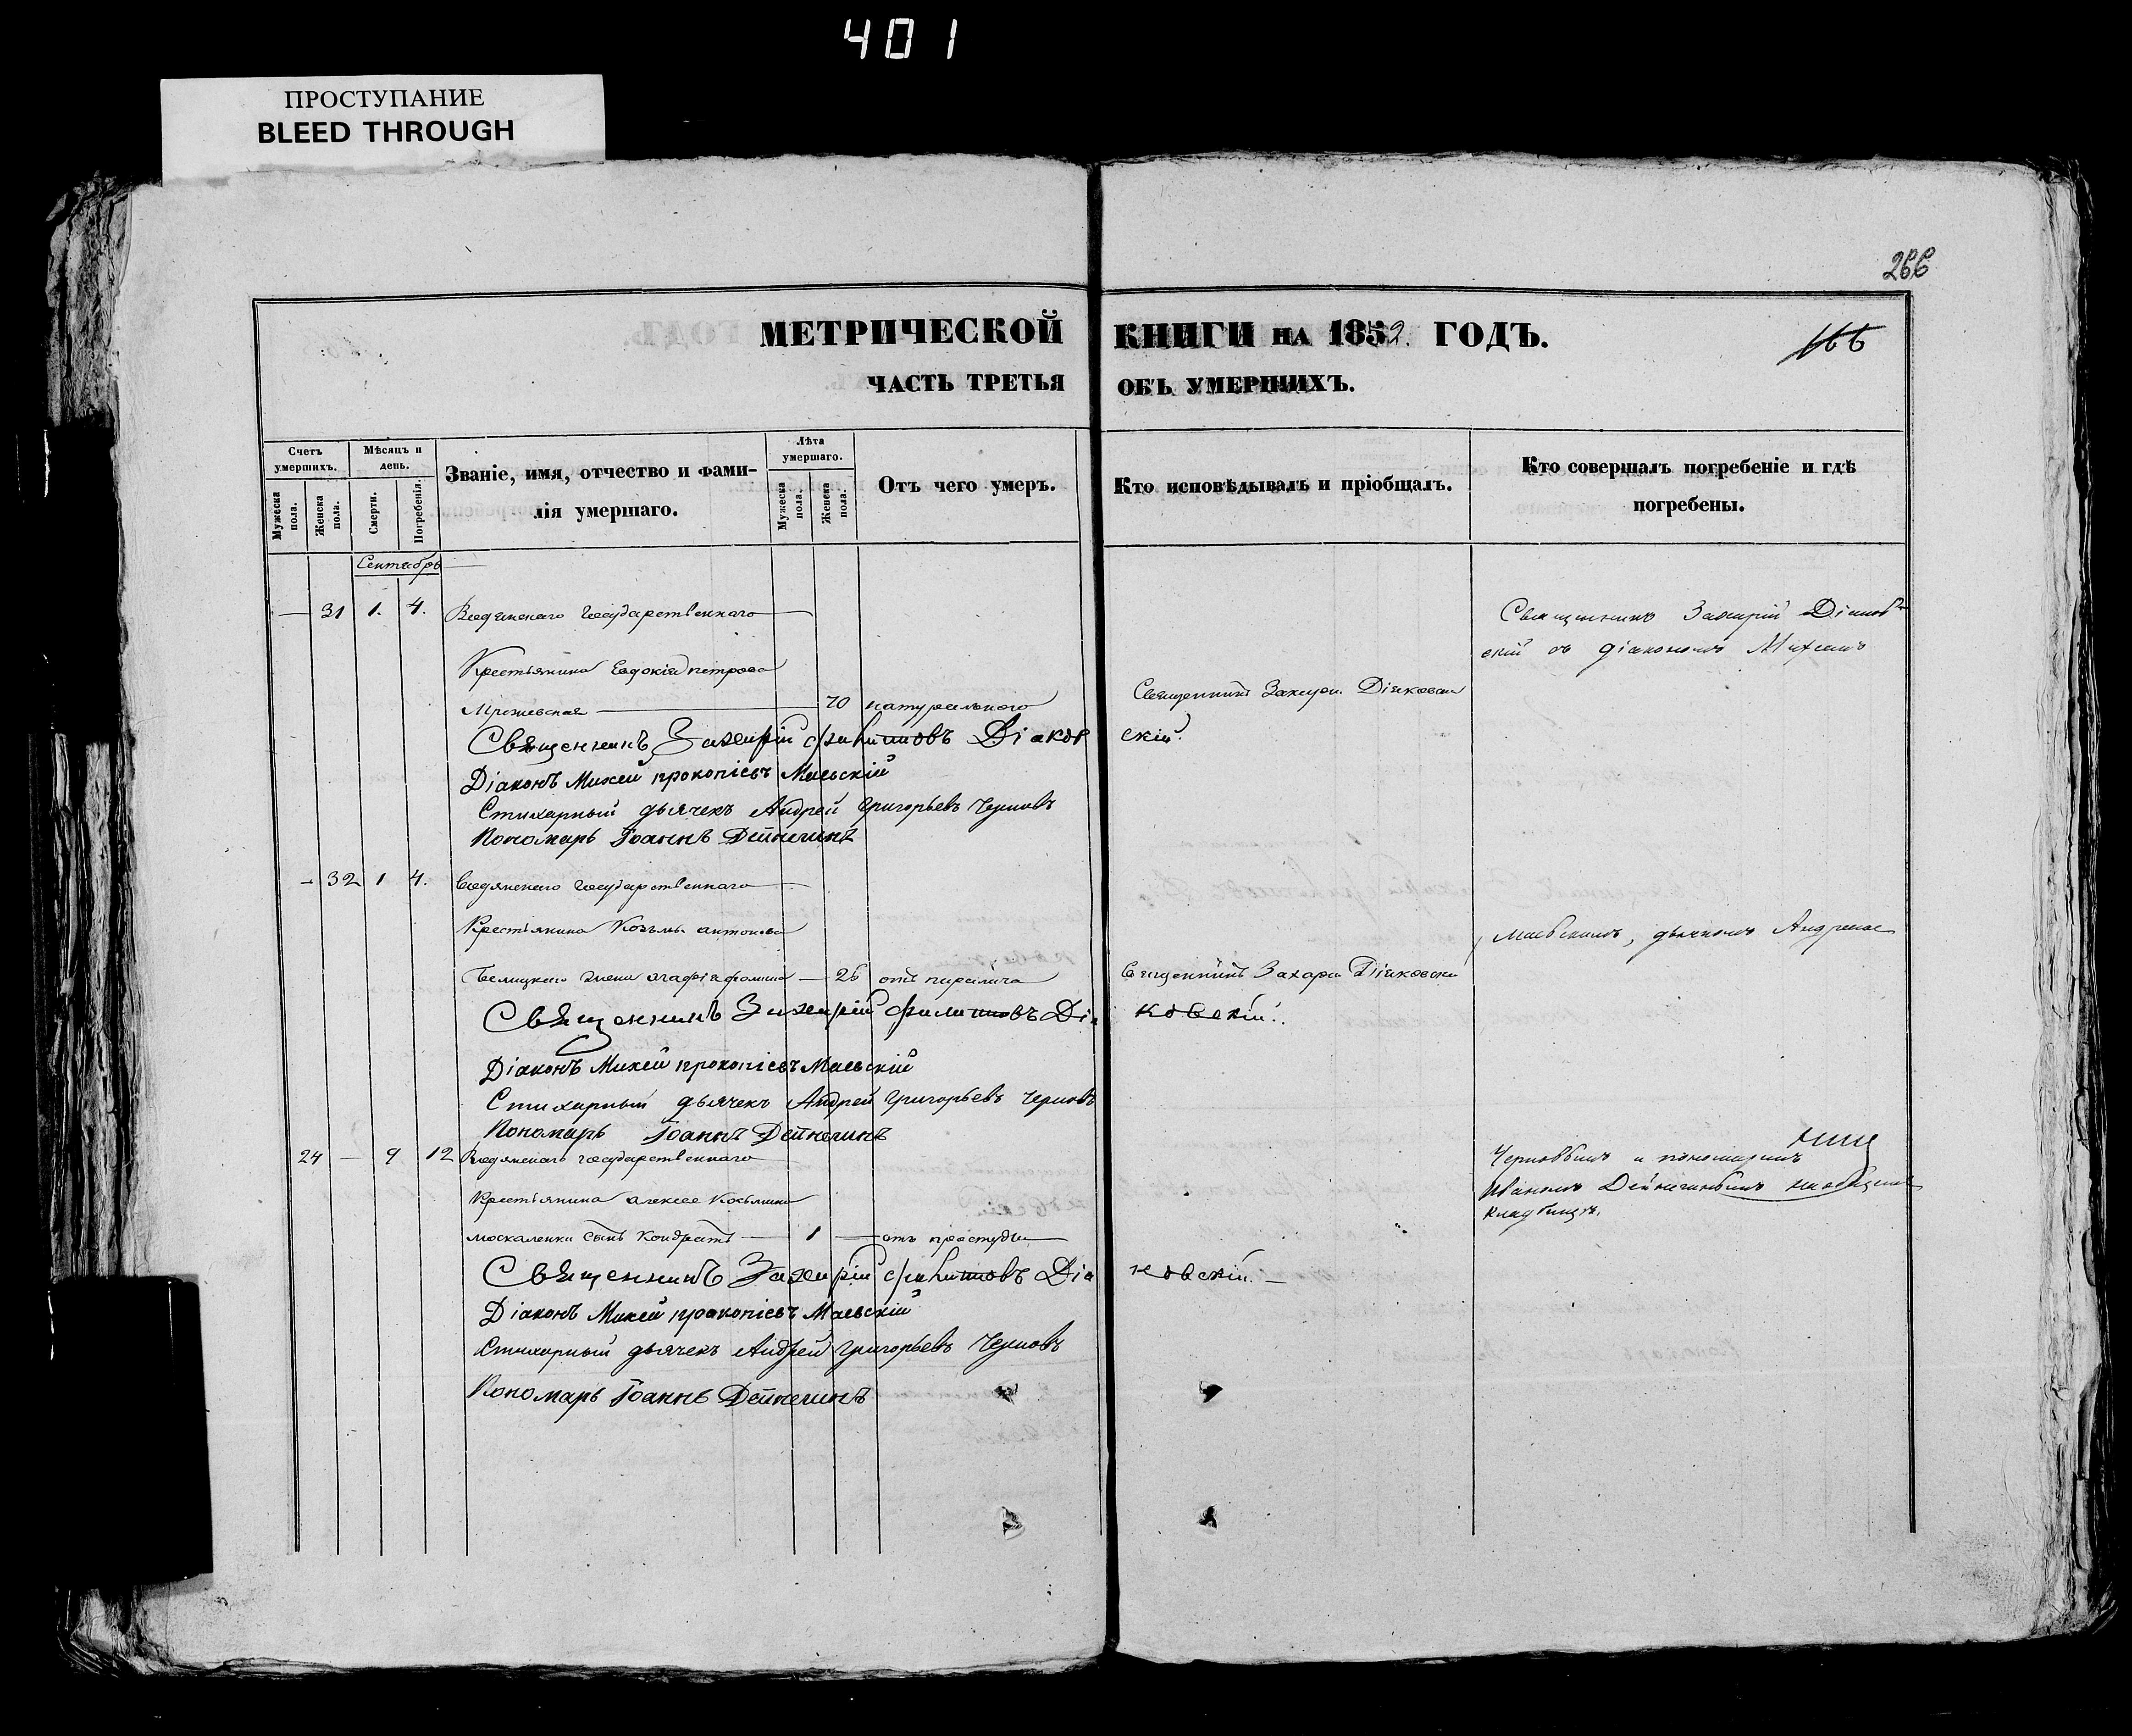 401
ПРОСТУПАНИЕ
BLEED THROUGH
266
МЕТРИЧЕСКОЙ КНИГИ НА 1852. ГОДЪ.
166
ЧАСТЬ ТРЕТЬЯ ОБЪ УМЕРШИХЪ.
Счетъ умершихъ.
Мѣсяцъ и день.
Званіе, имя, отчество и фами-
лія умершаго.
Лѣта умершаго.
Отъ чего умеръ.
Кто исповѣдывалъ и пріобщалъ.
Кто совершалъ погребеніе и гдѣ
погребены.
Мужеска пола.
Женска пола.
Смерти.
Погребенія.
Мужеска пола.
Женска пола.
Сентябрь
— 31 1. 4. Государственнаго
Священникъ Захарій Діаков-
скій съ діакономъ Михеемъ
Крестьянина Евдокія петрова
Священникъ Захарій Діаковскій
70 натуральнаго
Священникъ Захарій Филиповъ Діаков скій.
Діаконъ Михей прокопіевъ Маевскій
Стихарный дьячекъ Андрей Григорьевъ Черновъ
Пономарь Іоаннъ Дейнегинъ
— 32 1 4. государственнаго
Крестьянина Козьмы антонова
Маевскимъ, дьячкомъ Андреемъ
жена агафія фомина — 26 отъ паралича
Священникъ Захарій Діаковскій
Священникъ Захарій Филиповъ Діа ковскій.
Діаконъ Михей прокопіевъ Маевскій
Стихарный дьячекъ Андрей Григорьевъ Черновъ
Пономарь Іоаннъ Дейнегинъ
24 — 9 12 государственнаго
Черновымъ и пономаремъ
Крестьянина алексея Козьмина
Иваномъ Дейнегинымъ на общемъ
кладбищѣ.
москаленка сынъ Кондратъ — 1 — отъ простуды
Священникъ Захарій Филиповъ Діа ковскій. —
Діаконъ Михей прокопіевъ Маевскій
Стихарный дьячекъ Андрей Григорьевъ Черновъ
Пономарь Іоаннъ Дейнегинъ